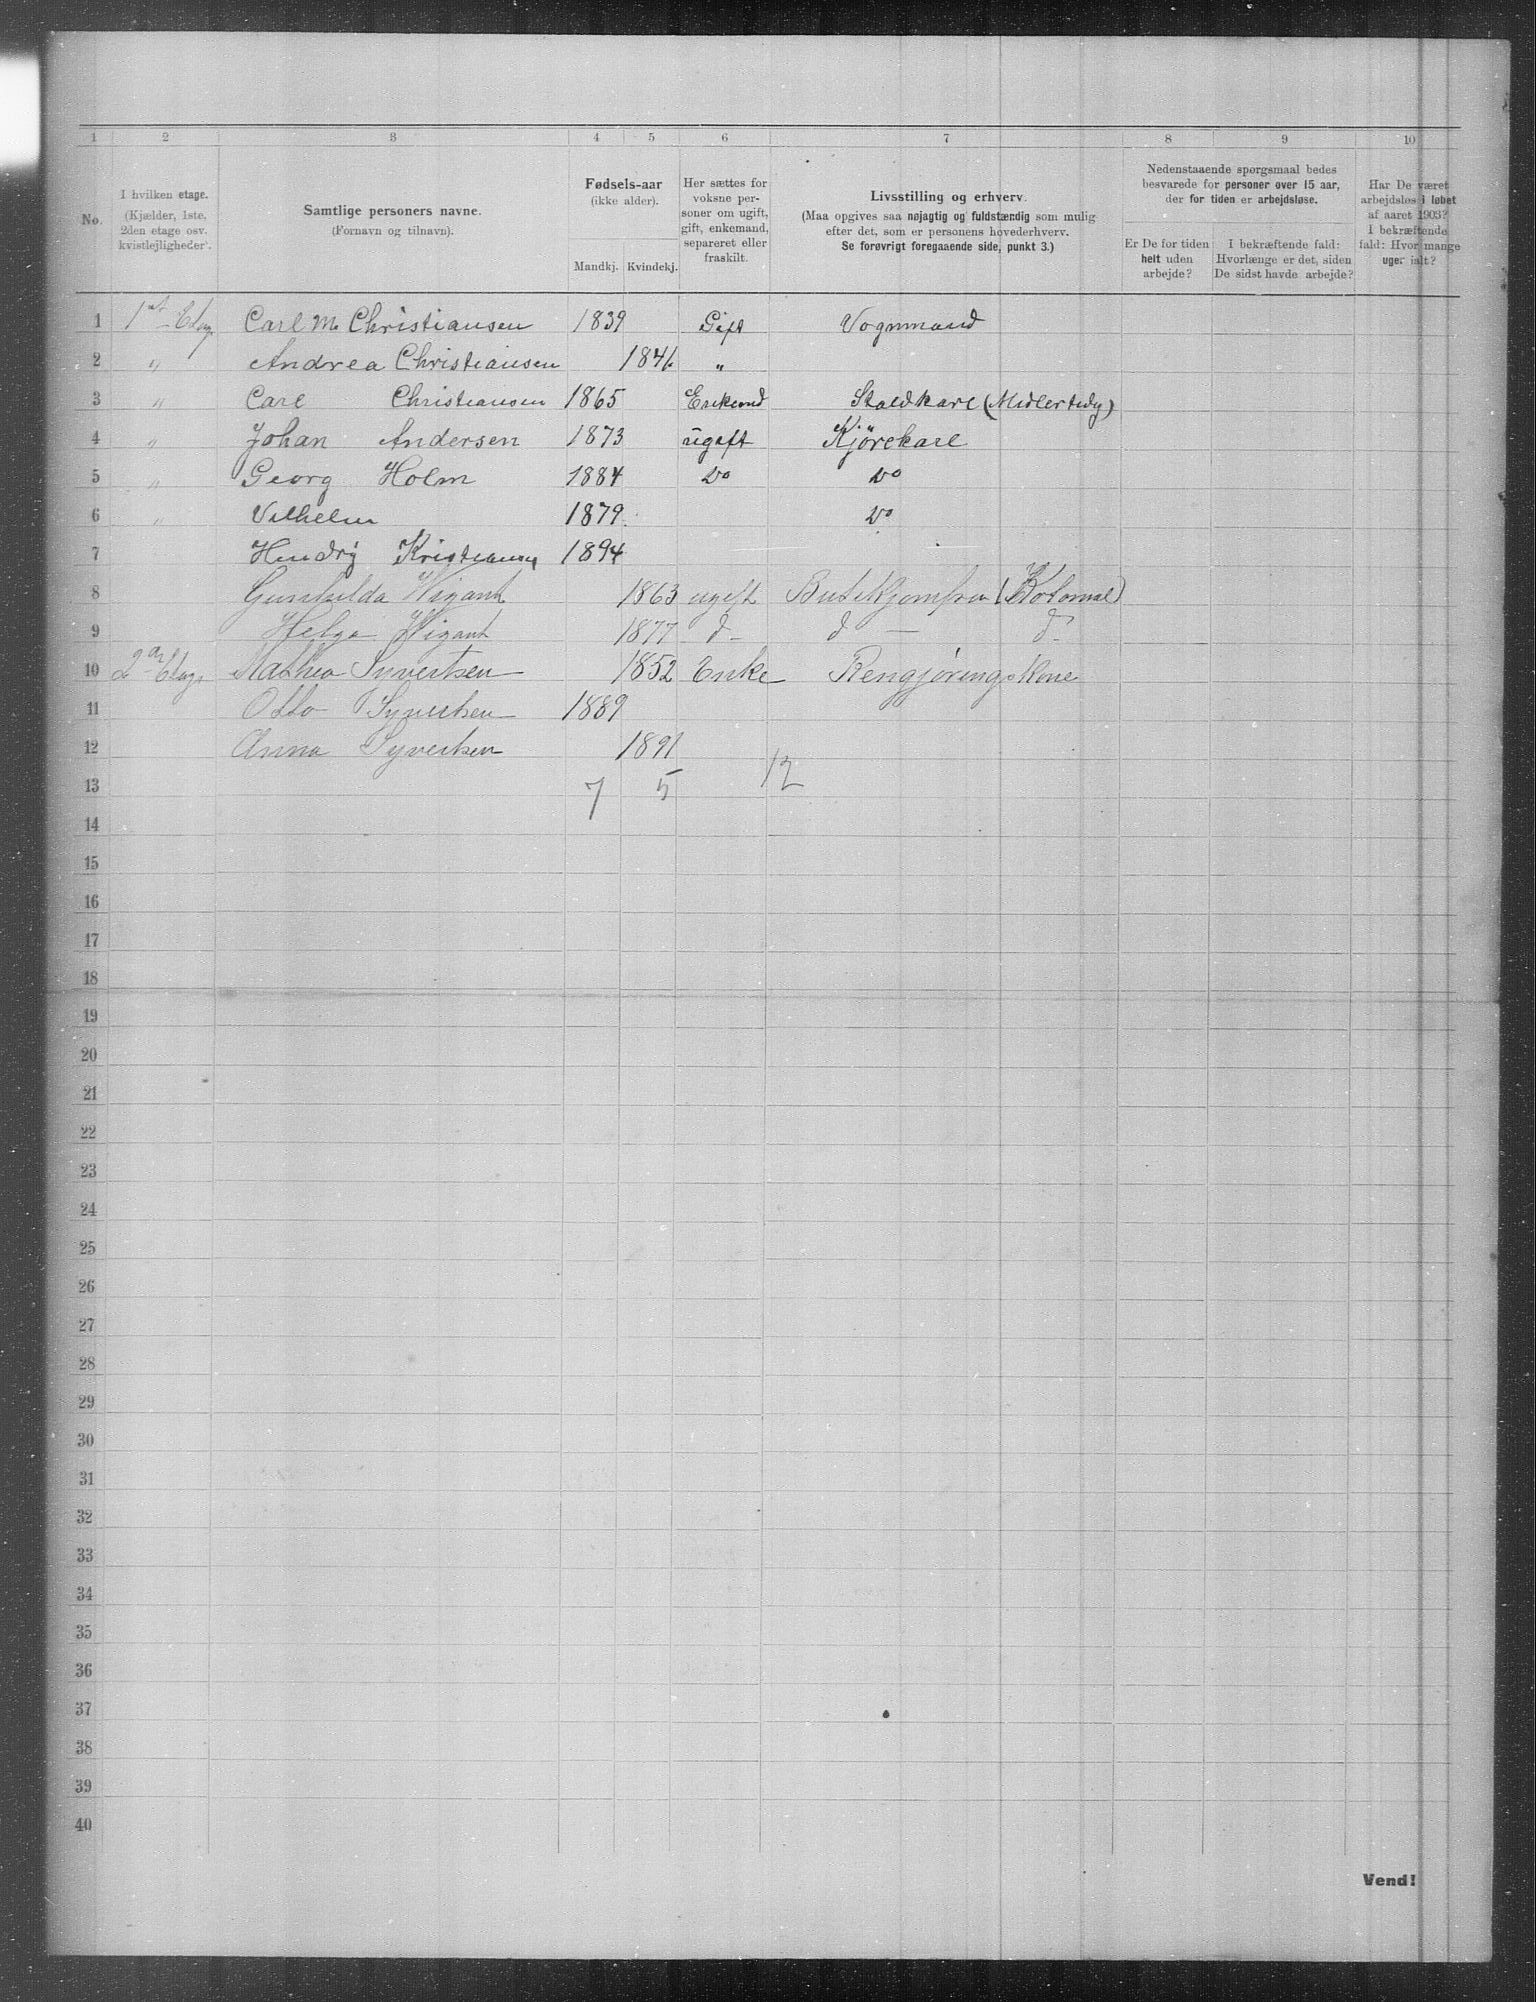 1 2 3 4 5 6 7 8 9 10
No.
I hvilken etage.
(Kjælder, 1ste,
2den etage osv.
kvistlejligheder).
Samtlige personers navne.
(Fornavn og tilnavn).
Fødsels-aar
(ikke alder).
Mandkj. Kvindekj.
Her sættes for
voksne per-
soner om ugift,
gift, enkemand,
separeret eller
fraskilt.
Livsstilling og erhverv.
(Maa opgives saa nøjagtig og fuldstændig som mulig
efter det, som er personens hovederhverv.
Se forøvrigt foregaaende side, punkt 3.)
Nedenstaaende spørgsmaal bedes
besvarede for personer over 15 aar,
der for tiden er arbejdsløse.
Er De for tiden
helt uden
arbejde?
I bekræftende fald:
Hvorlænge er det, siden
De sidst havde arbejde?
Har De været
arbejdsløs i løbet
af aaret 1903?
I bekræftende
fald: Hvor mange
uger ialt?
1 1st Etag. Carl M. Christiansen 1839 Gift Vognmand
2 " Andrea Christiansen 1846 "
3 " Carl Christiansen 1865 Enkemd Staldkarl (Midlertidig)
4 " Johan Andersen 1873 ugift Kjørekarl
5 " Georg Holm 1884 Do Do
6 " Vilhelm 1879 Do
7 Hendry Kristiansen 1894
8 Gunhilda Wigant 1863 ugift Butikjomfru (Kolonial)
9 Helga Wigant 1877 d- d — d-
10 2den Etag. Mathea Syvertsen 1852 Enke Rengjøringskone
11 Otto Syvertsen 1889
12 Anna Syvertsen 1891
13 7 5 12
14
15
16
17
18
19
20
21
22
23
24
25
26
27
28
29
30
31
32
33
34
35
36
37
38
39
40
Vend!